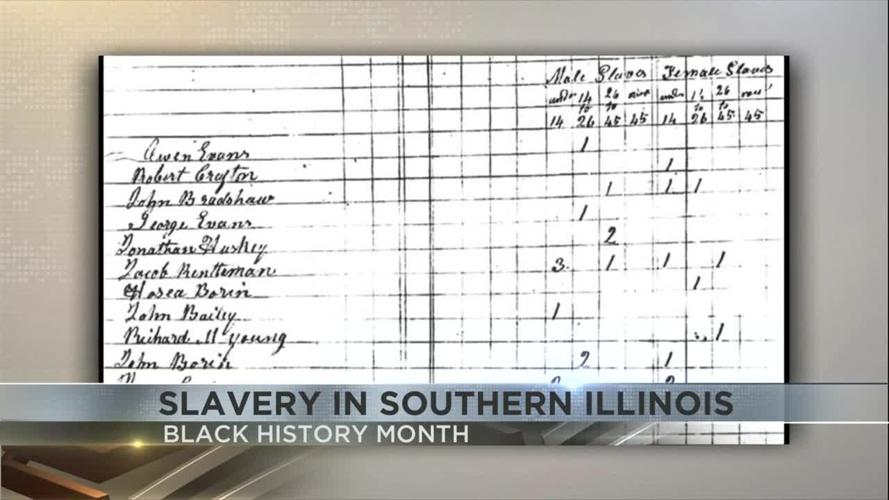 Male Slaves Female Slaves
under 14 26 under 14 26
to to to to
14 26 45 45 14 26 45 45
Owen Evans 1
Robert Cryton 1
John Bradshaw 1 1 1
George Evans 1
Jonathan Huskey 2
Jacob 3 1 1 1
Hosea Borin 1
John Bailey 1
Richard M Young 1
John Borin 2 1
SLAVERY IN SOUTHERN ILLINOIS
BLACK HISTORY MONTH